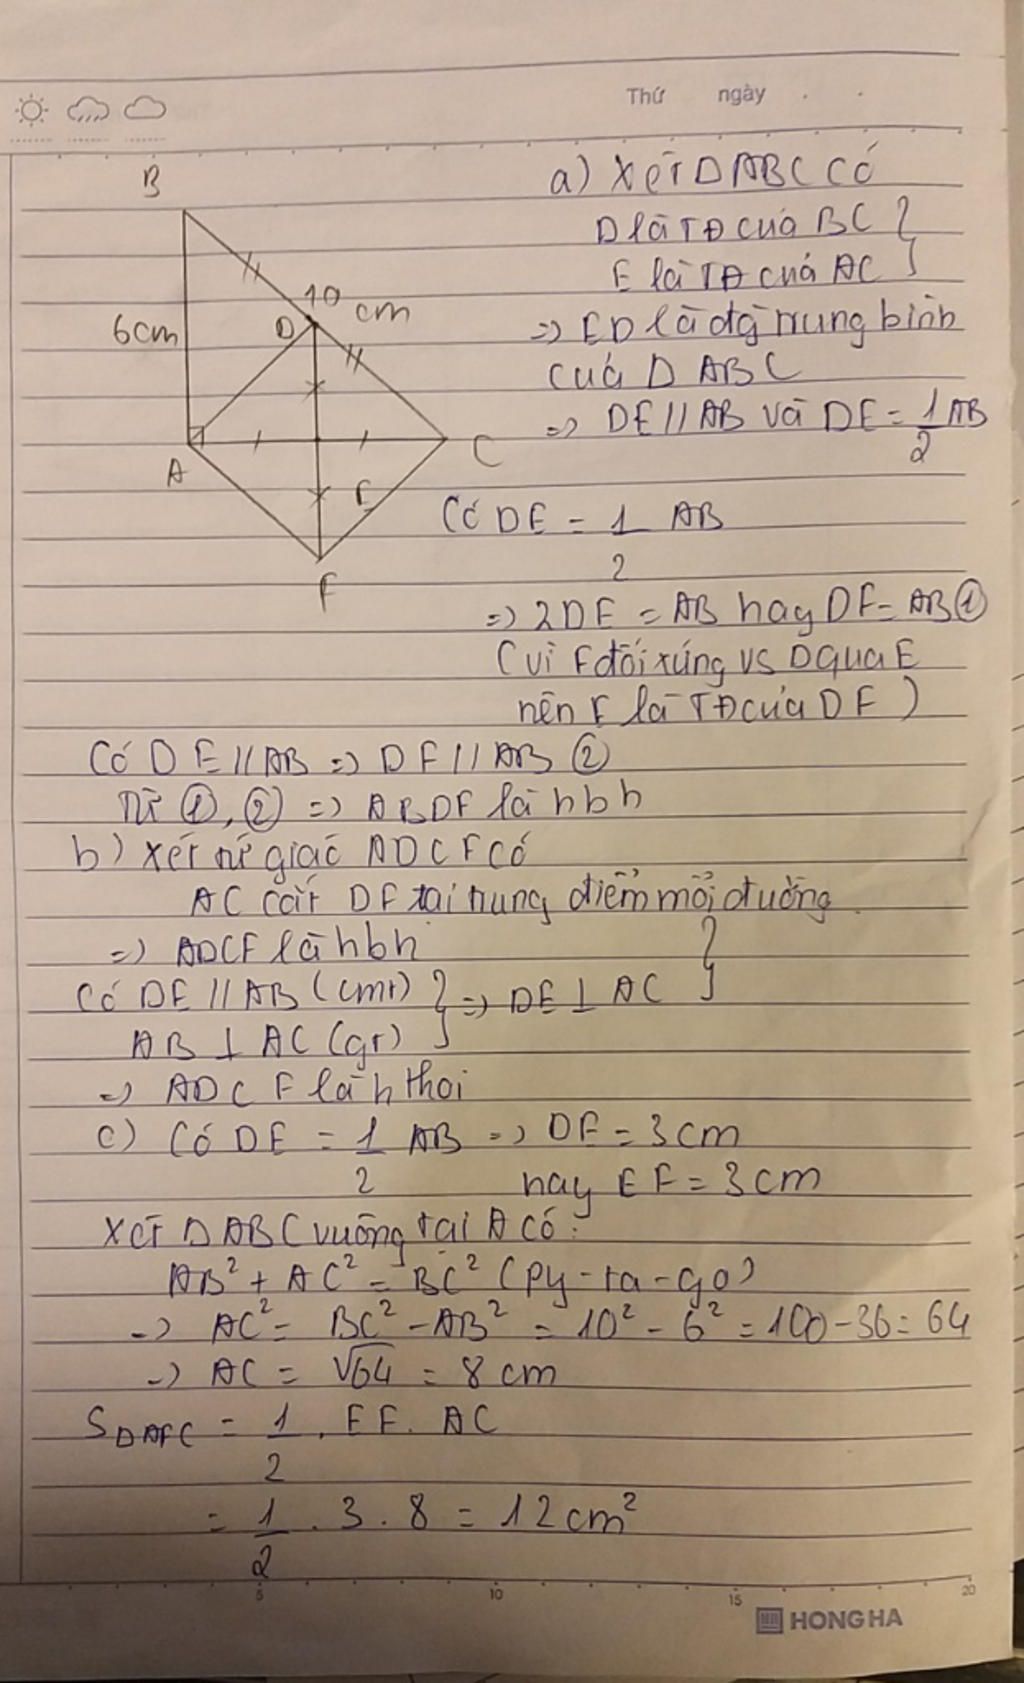 Thứ ngày
B
6cm
10 cm
D
A
C
E
F
a) Xét Δ ABC có
D là TĐ của BC }
E là TĐ của AC }
=> ED là đg trung bình
của Δ ABC
=> DE // AB và DE = 1/2 AB
Có DE = 1/2 AB
=> 2DE = AB hay DF = AB ①
(vì F đối xứng vs D qua E
nên E là TĐ của DF)
Có DE // AB => DF // AB ②
Từ ①, ② => ABDF là hbh
b) Xét tứ giác ADCF có
AC cắt DF tại trung điểm mỗi đường
=> ADCF là hbh }
Có DE // AB (cmt) } => DE ⊥ AC }
AB ⊥ AC (gt) }
=> ADCF là h thoi
c) Có DE = 1/2 AB => DE = 3cm
hay EF = 3cm
Xét Δ ABC vuông tại A có:
AB² + AC² = BC² (Py-ta-go)
=> AC² = BC² - AB² = 10² - 6² = 100 - 36 = 64
=> AC = √64 = 8 cm
S Δ AFC = 1/2 . EF . AC
= 1/2 . 3 . 8 = 12 cm²
5 10 15 20
HONG HA